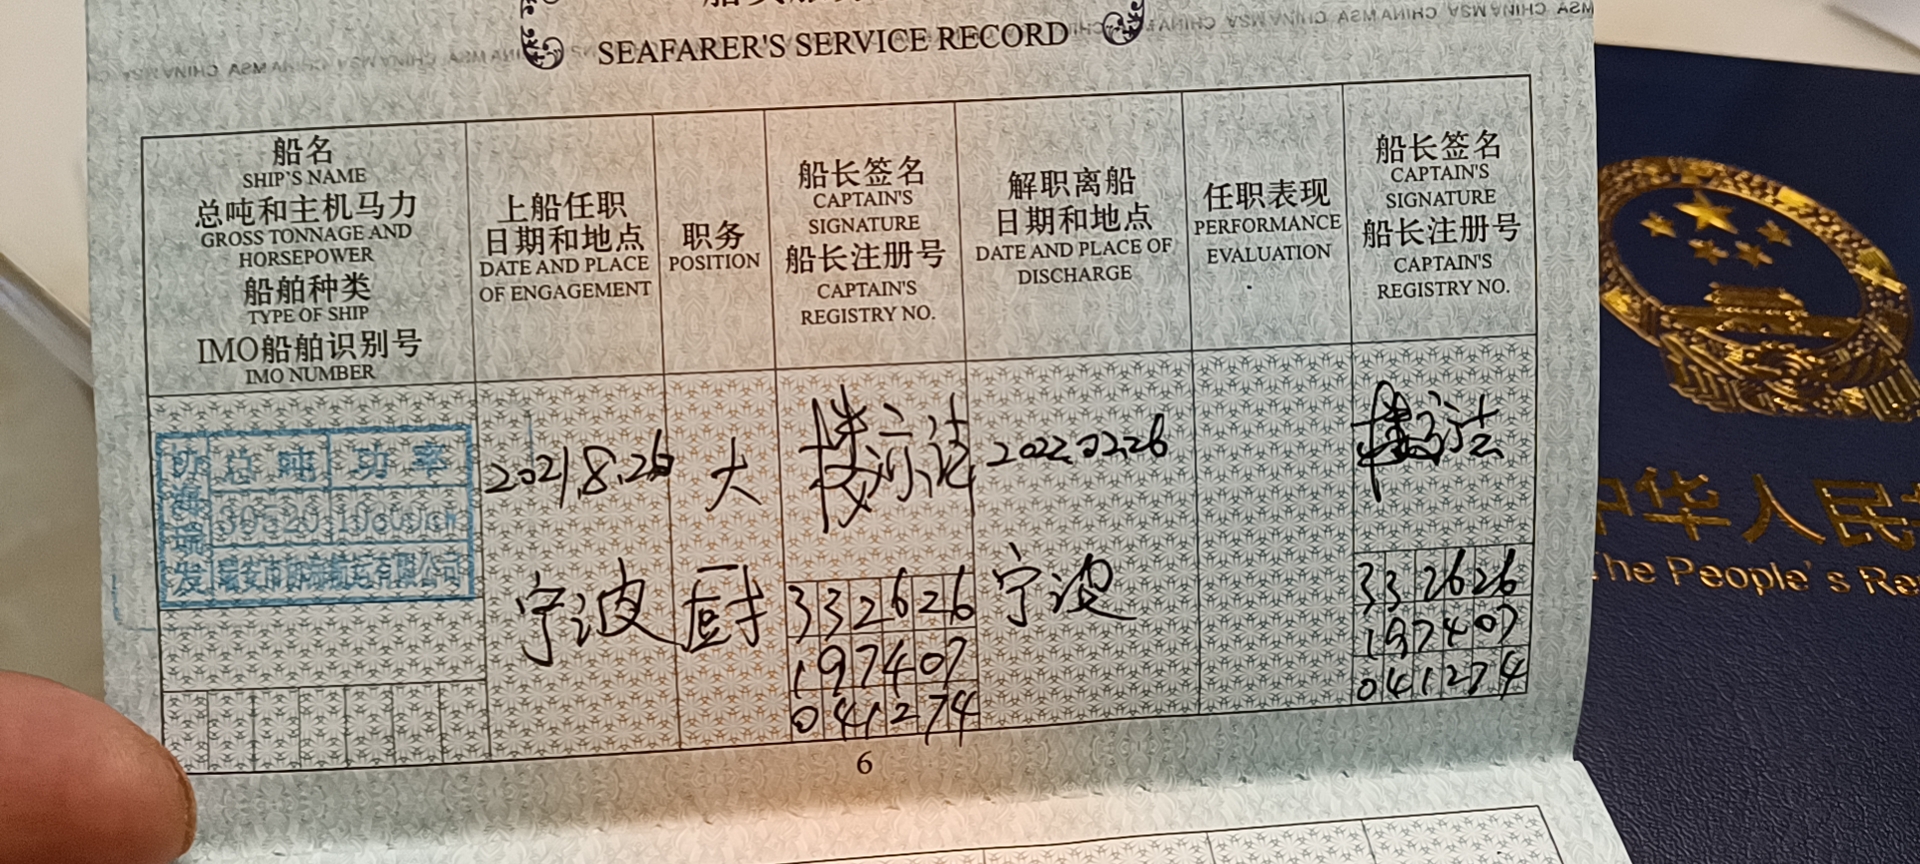 SEAFARER'S SERVICE RECORD
船名
SHIP'S NAME
总吨和主机马力
GROSS TONNAGE AND
HORSEPOWER
船舶种类
TYPE OF SHIP
IMO船舶识别号
IMO NUMBER
上船任职
日期和地点
DATE AND PLACE
OF ENGAGEMENT
职务
POSITION
船长签名
CAPTAIN'S
SIGNATURE
船长注册号
CAPTAIN'S
REGISTRY NO.
解职离船
日期和地点
DATE AND PLACE OF
DISCHARGE
任职表现
PERFORMANCE
EVALUATION
船长签名
CAPTAIN'S
SIGNATURE
船长注册号
CAPTAIN'S
REGISTRY NO.
总吨 功率
瑞安市协海航运有限公司
2021.8.26
宁波
大
厨
332626
197407
041274
2022.02.26
宁波
332626
197407
041274
6
中华人民
The People's Re